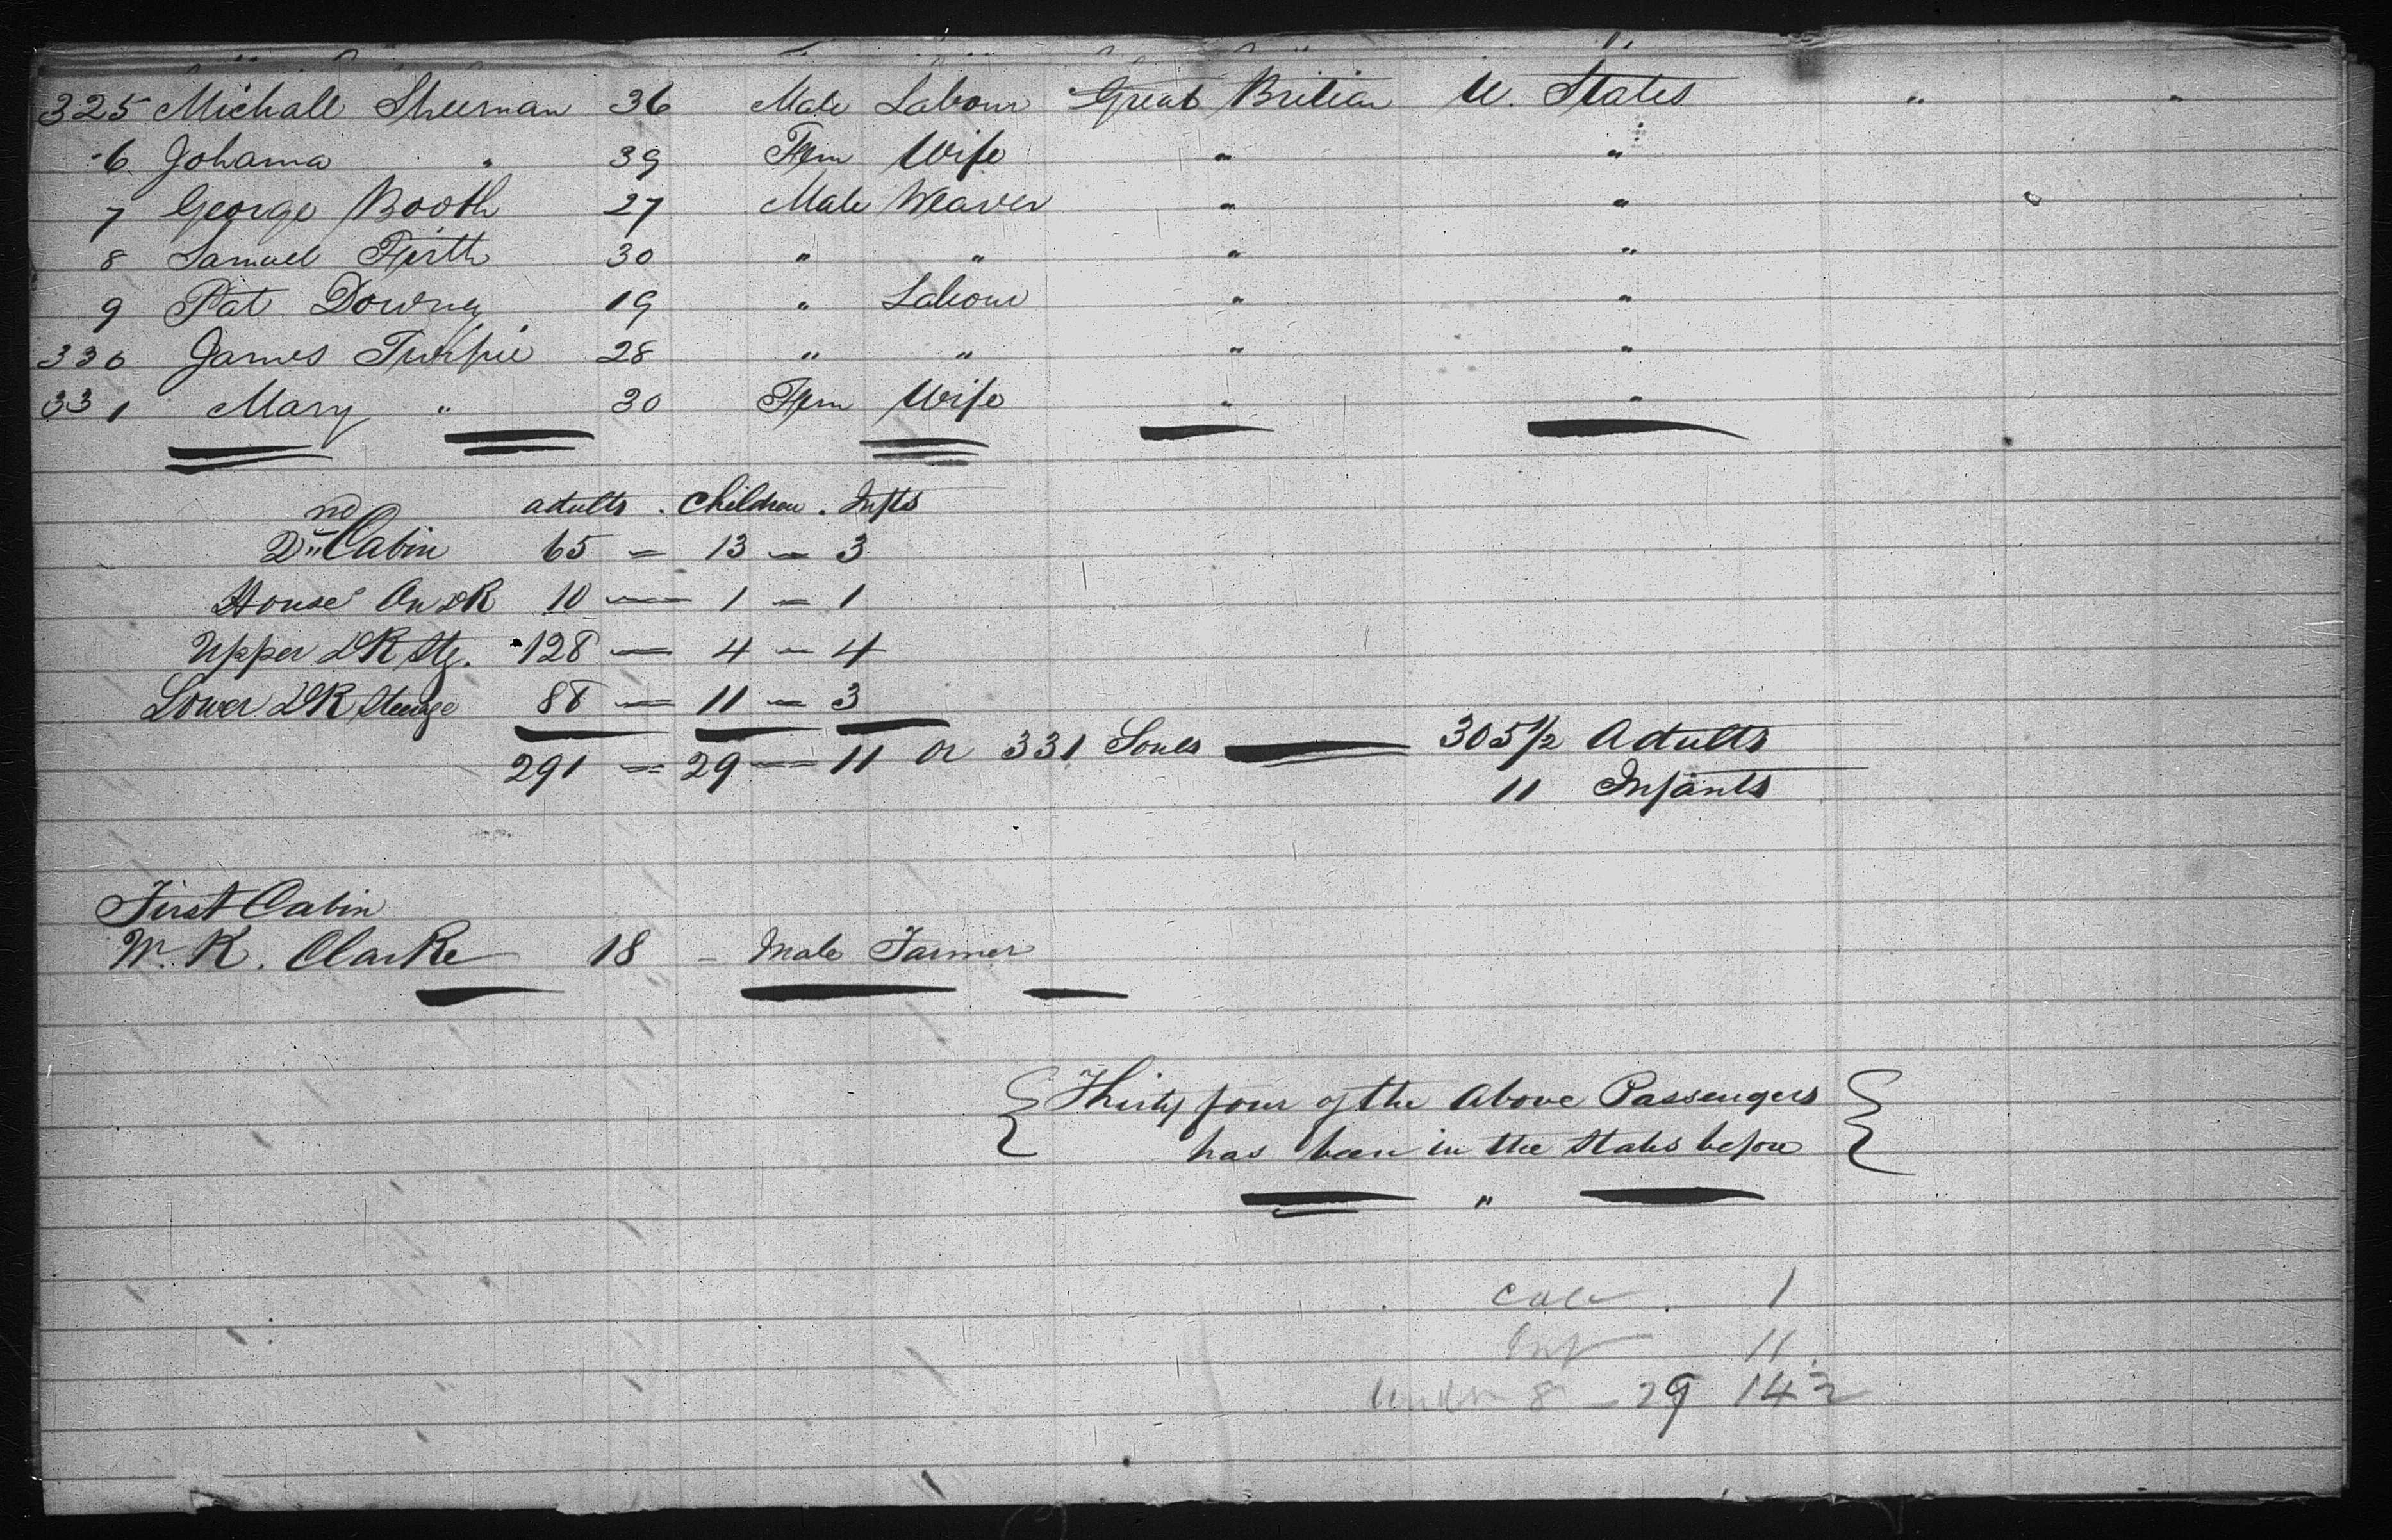 325 Michall Sheeman 36 Male Labour Great Britian U. States " "
6 Johanna " 39 Fem Wife " "
7 George Booth 27 Male Weaver " "
8 Samuel Firth 30 " " " "
9 Pat Downey 19 " Labour " "
330 James Turpie 28 " " " "
331 Mary " 30 Fem Wife " "
adults . Children . Infts
2nd Cabin 65 – 13 – 3
House On DK 10 – 1 – 1
Upper DK Stg. 128 – 4 – 4
Lower DK Steerage 88 – 11 – 3
291 – 29 – 11 or 331 Souls — 305 1/2 Adults
11 Infants
First Cabin
W. K. Clarke 18 – Male Farmer
Thirty four of the Above Passengers
has been in the States before
"
1
Inf 11
under 8 – 29 14 1/2